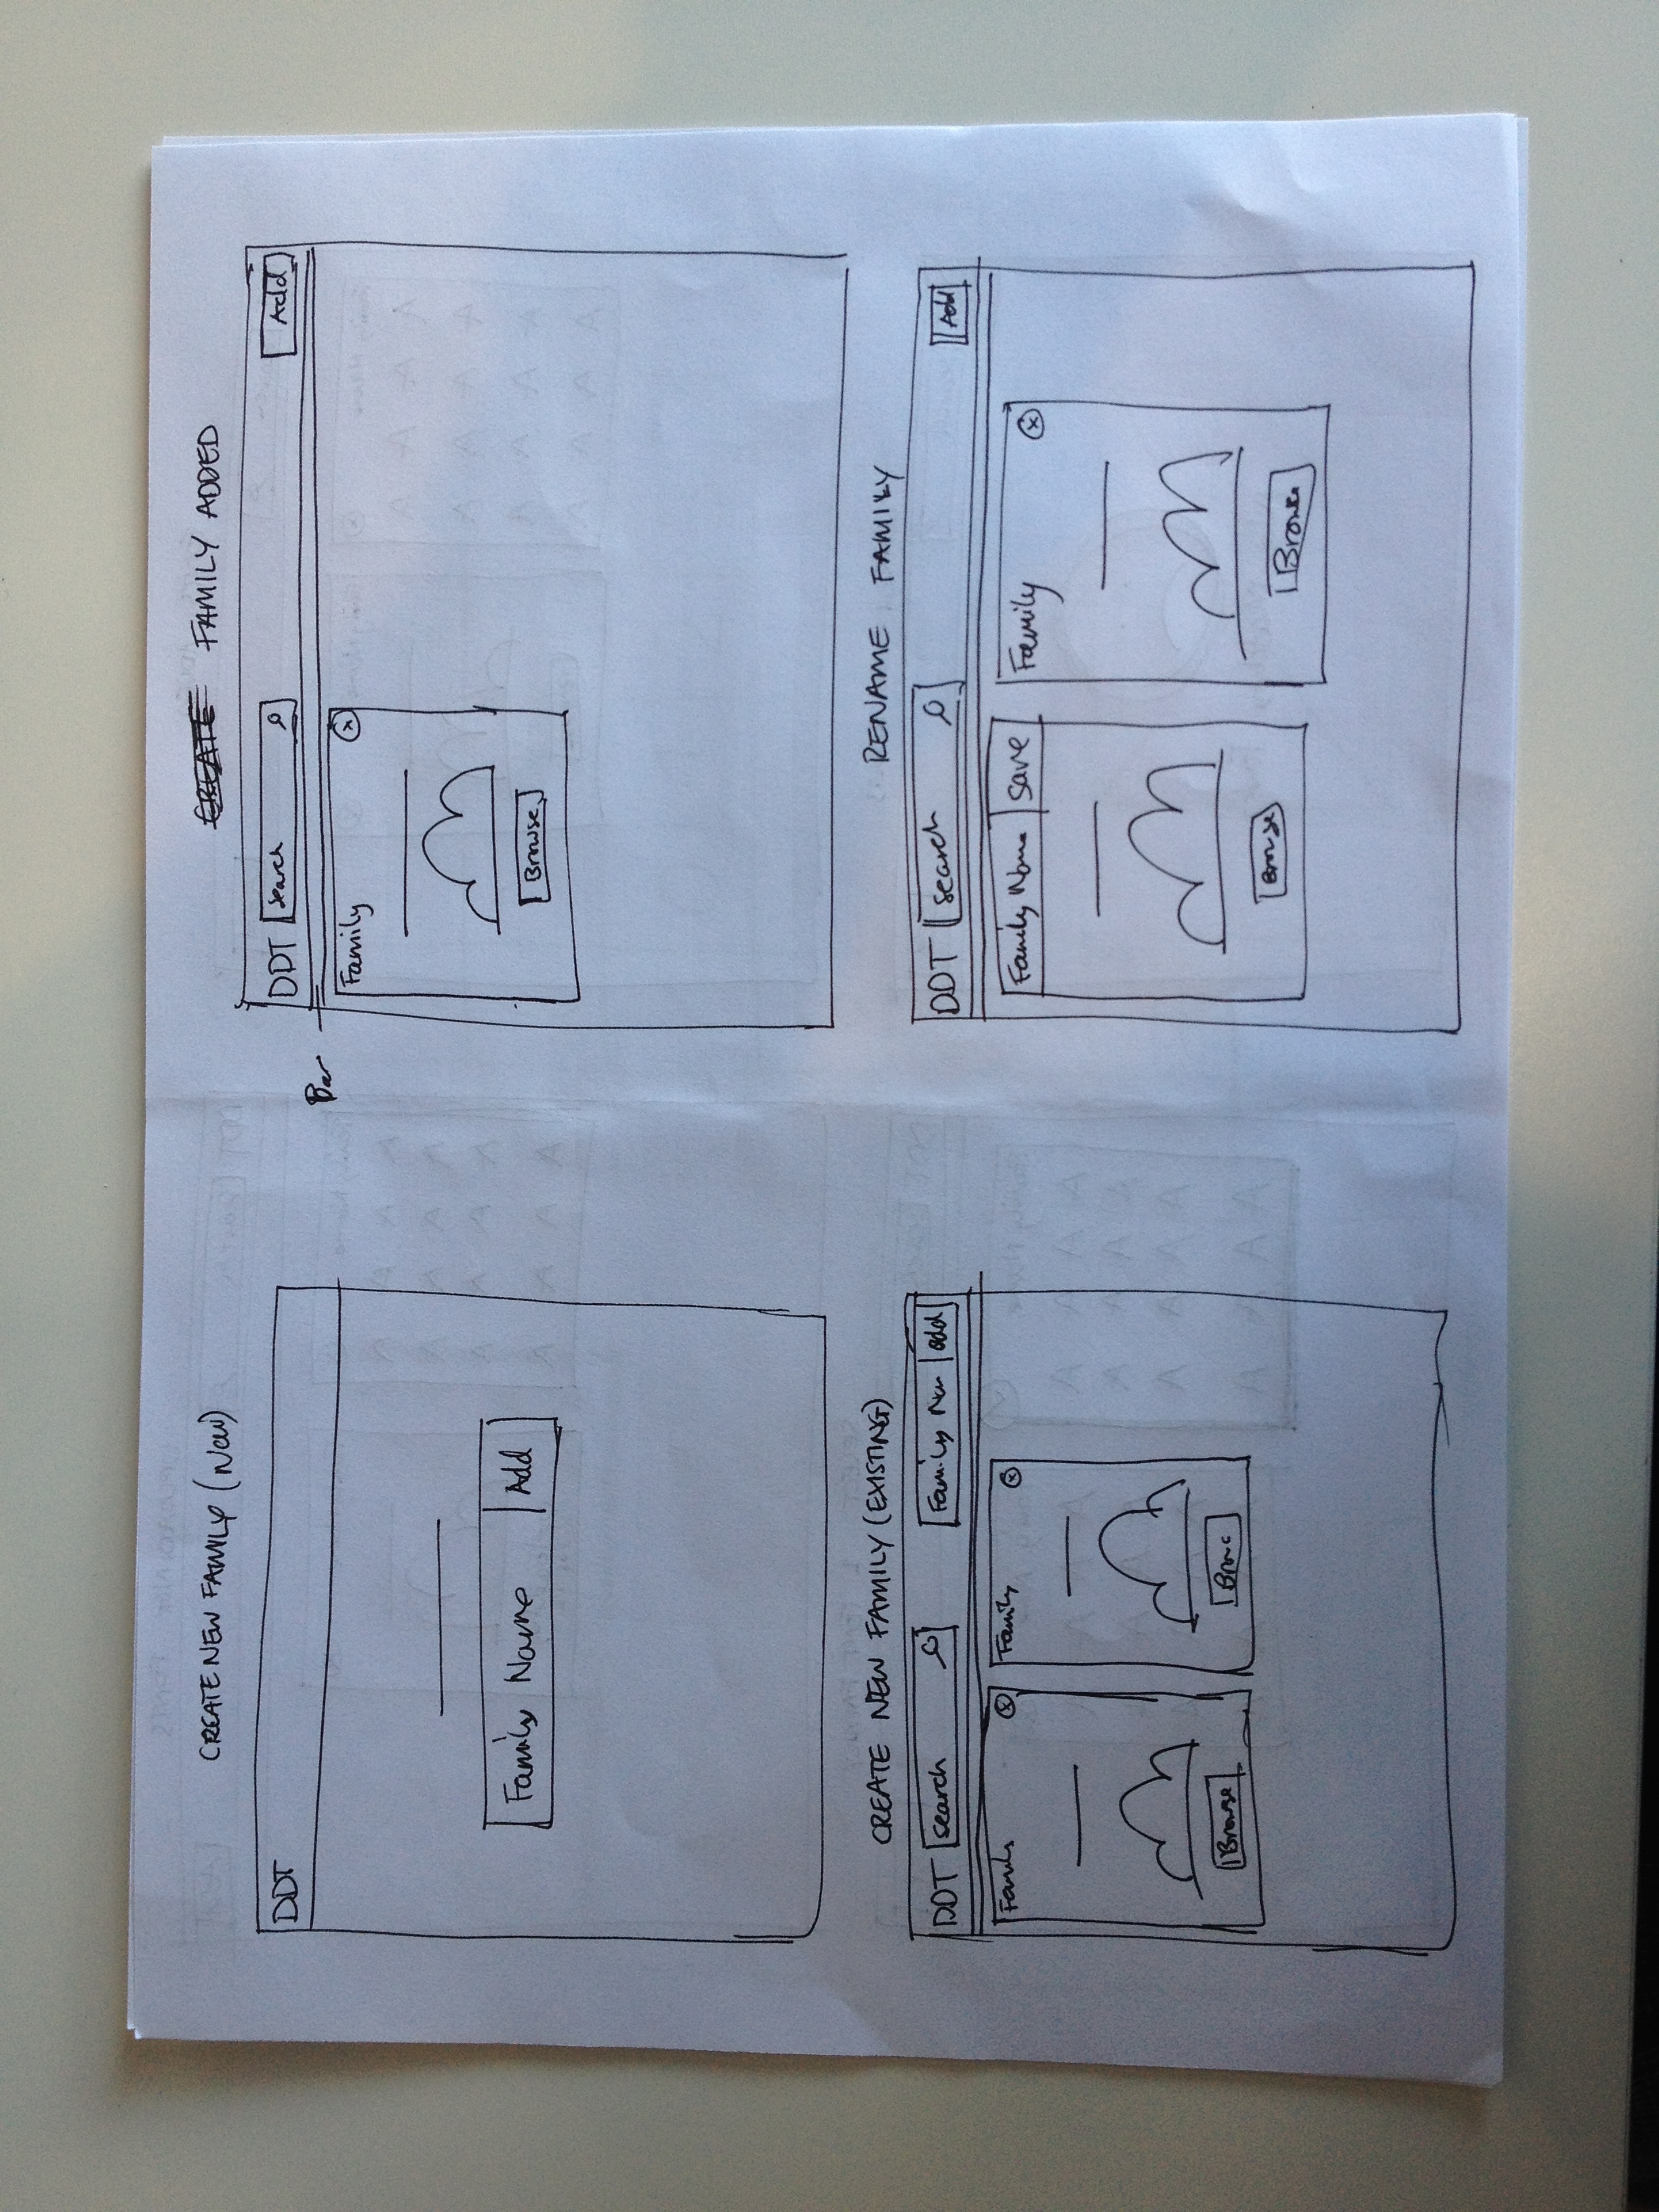 CREATE NEW FAMILY (NEW)
DDT
Family Name Add
CREATE FAMILY ADDED
DDT Search Add
Bar
Family x
Browse
CREATE NEW FAMILY (EXISTING)
DDT Search Family Nam add
Family x
Browse
Family x
Brow
RENAME FAMILY
DDT Search Add
Family Name Save
Browse
Family x
Browse